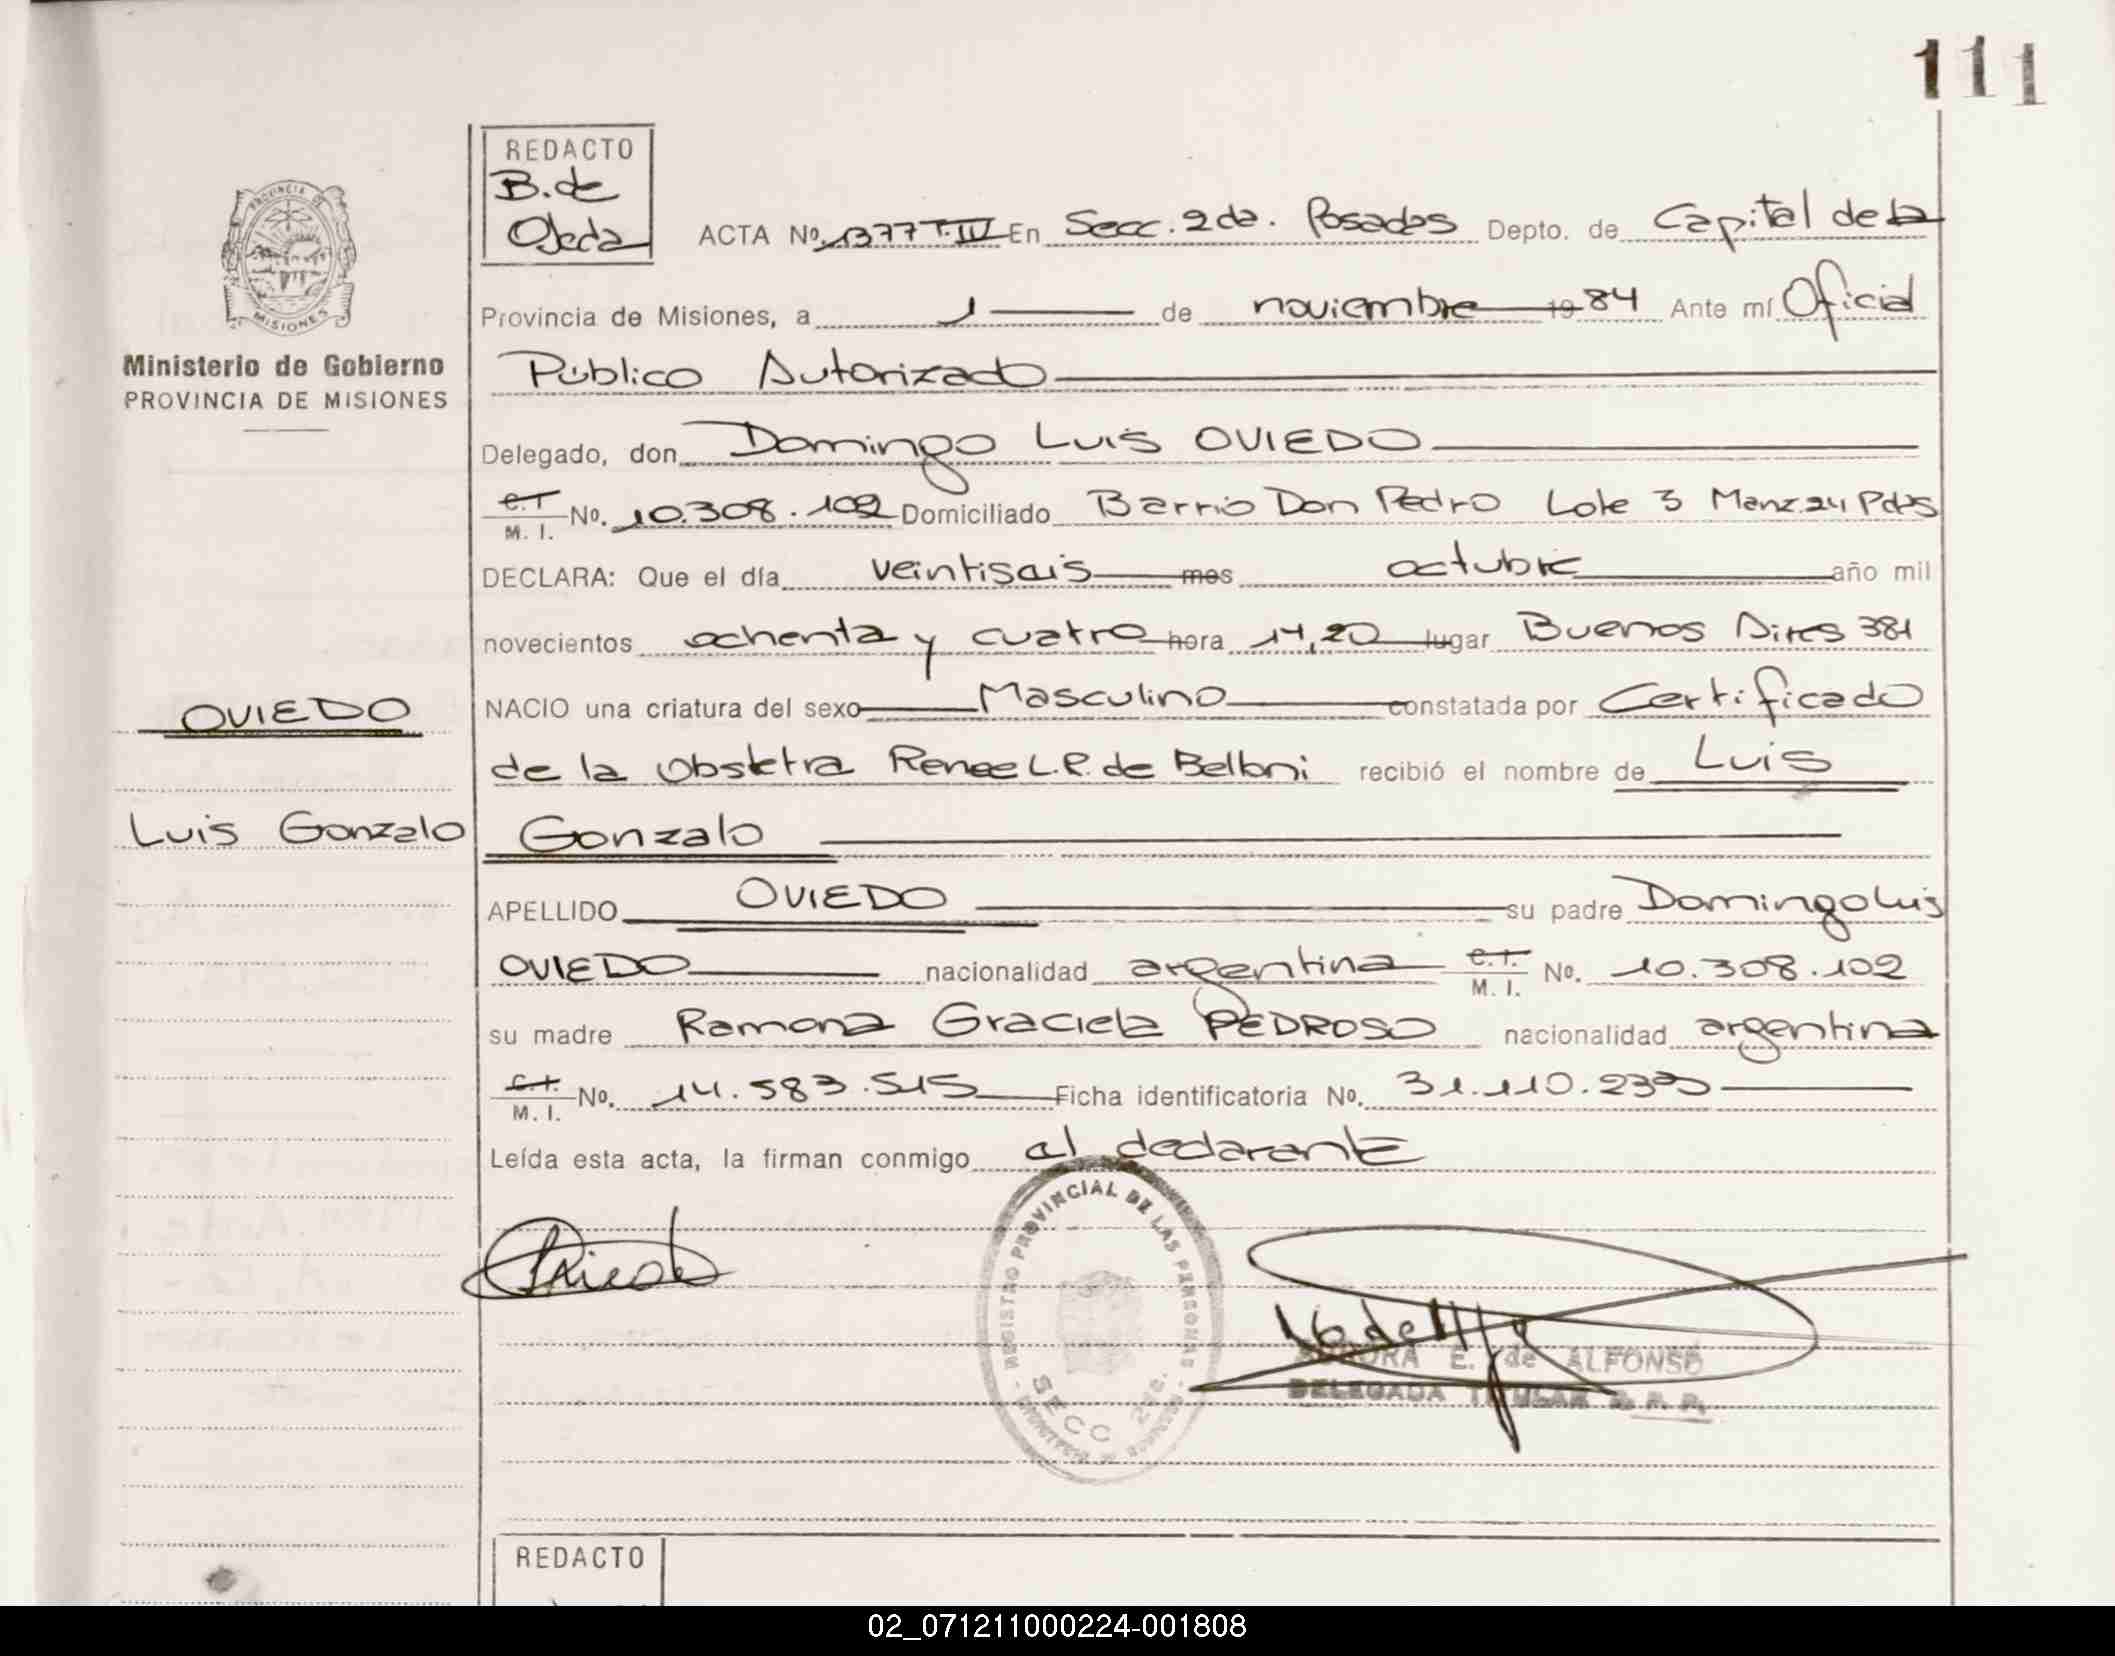 111
REDACTO
B. de
Ojeda
PROVINCIA DE
MISIONES
Ministerio de Gobierno
PROVINCIA DE MISIONES
ACTA Nº. 1377 T. IV En Secc. 2da. Posadas Depto. de Capital de la
Provincia de Misiones, a 1 de noviembre 1984 Ante mí Oficial
Público Autorizado
Delegado, don Domingo Luis OVIEDO
C.I. M. I. Nº. 10.308.102 Domiciliado Barrio Don Pedro Lote 3 Manz. 24 Pdas
DECLARA: Que el día veintiseis mes octubre año mil
novecientos ochenta y cuatro hora 14,20 lugar Buenos Aires 381
NACIO una criatura del sexo Masculino constatada por Certificado
de la Obstetra Renee L.P. de Belloni recibió el nombre de Luis
Gonzalo
OVIEDO
Luis Gonzalo
APELLIDO OVIEDO su padre Domingo Luis
OVIEDO nacionalidad argentina C.I. M. I. Nº. 10.308.102
su madre Ramona Graciela PEDROSO nacionalidad argentina
C.I. M. I. Nº. 14.583.515 Ficha identificatoria Nº. 31.110.233
Leída esta acta, la firman conmigo el declarante
REGISTRO PROVINCIAL DE LAS PERSONAS
SECC 2da.
E. de ALFONSO
DELEGADA TITULAR R. P. P.
REDACTO
02_071211000224-001808